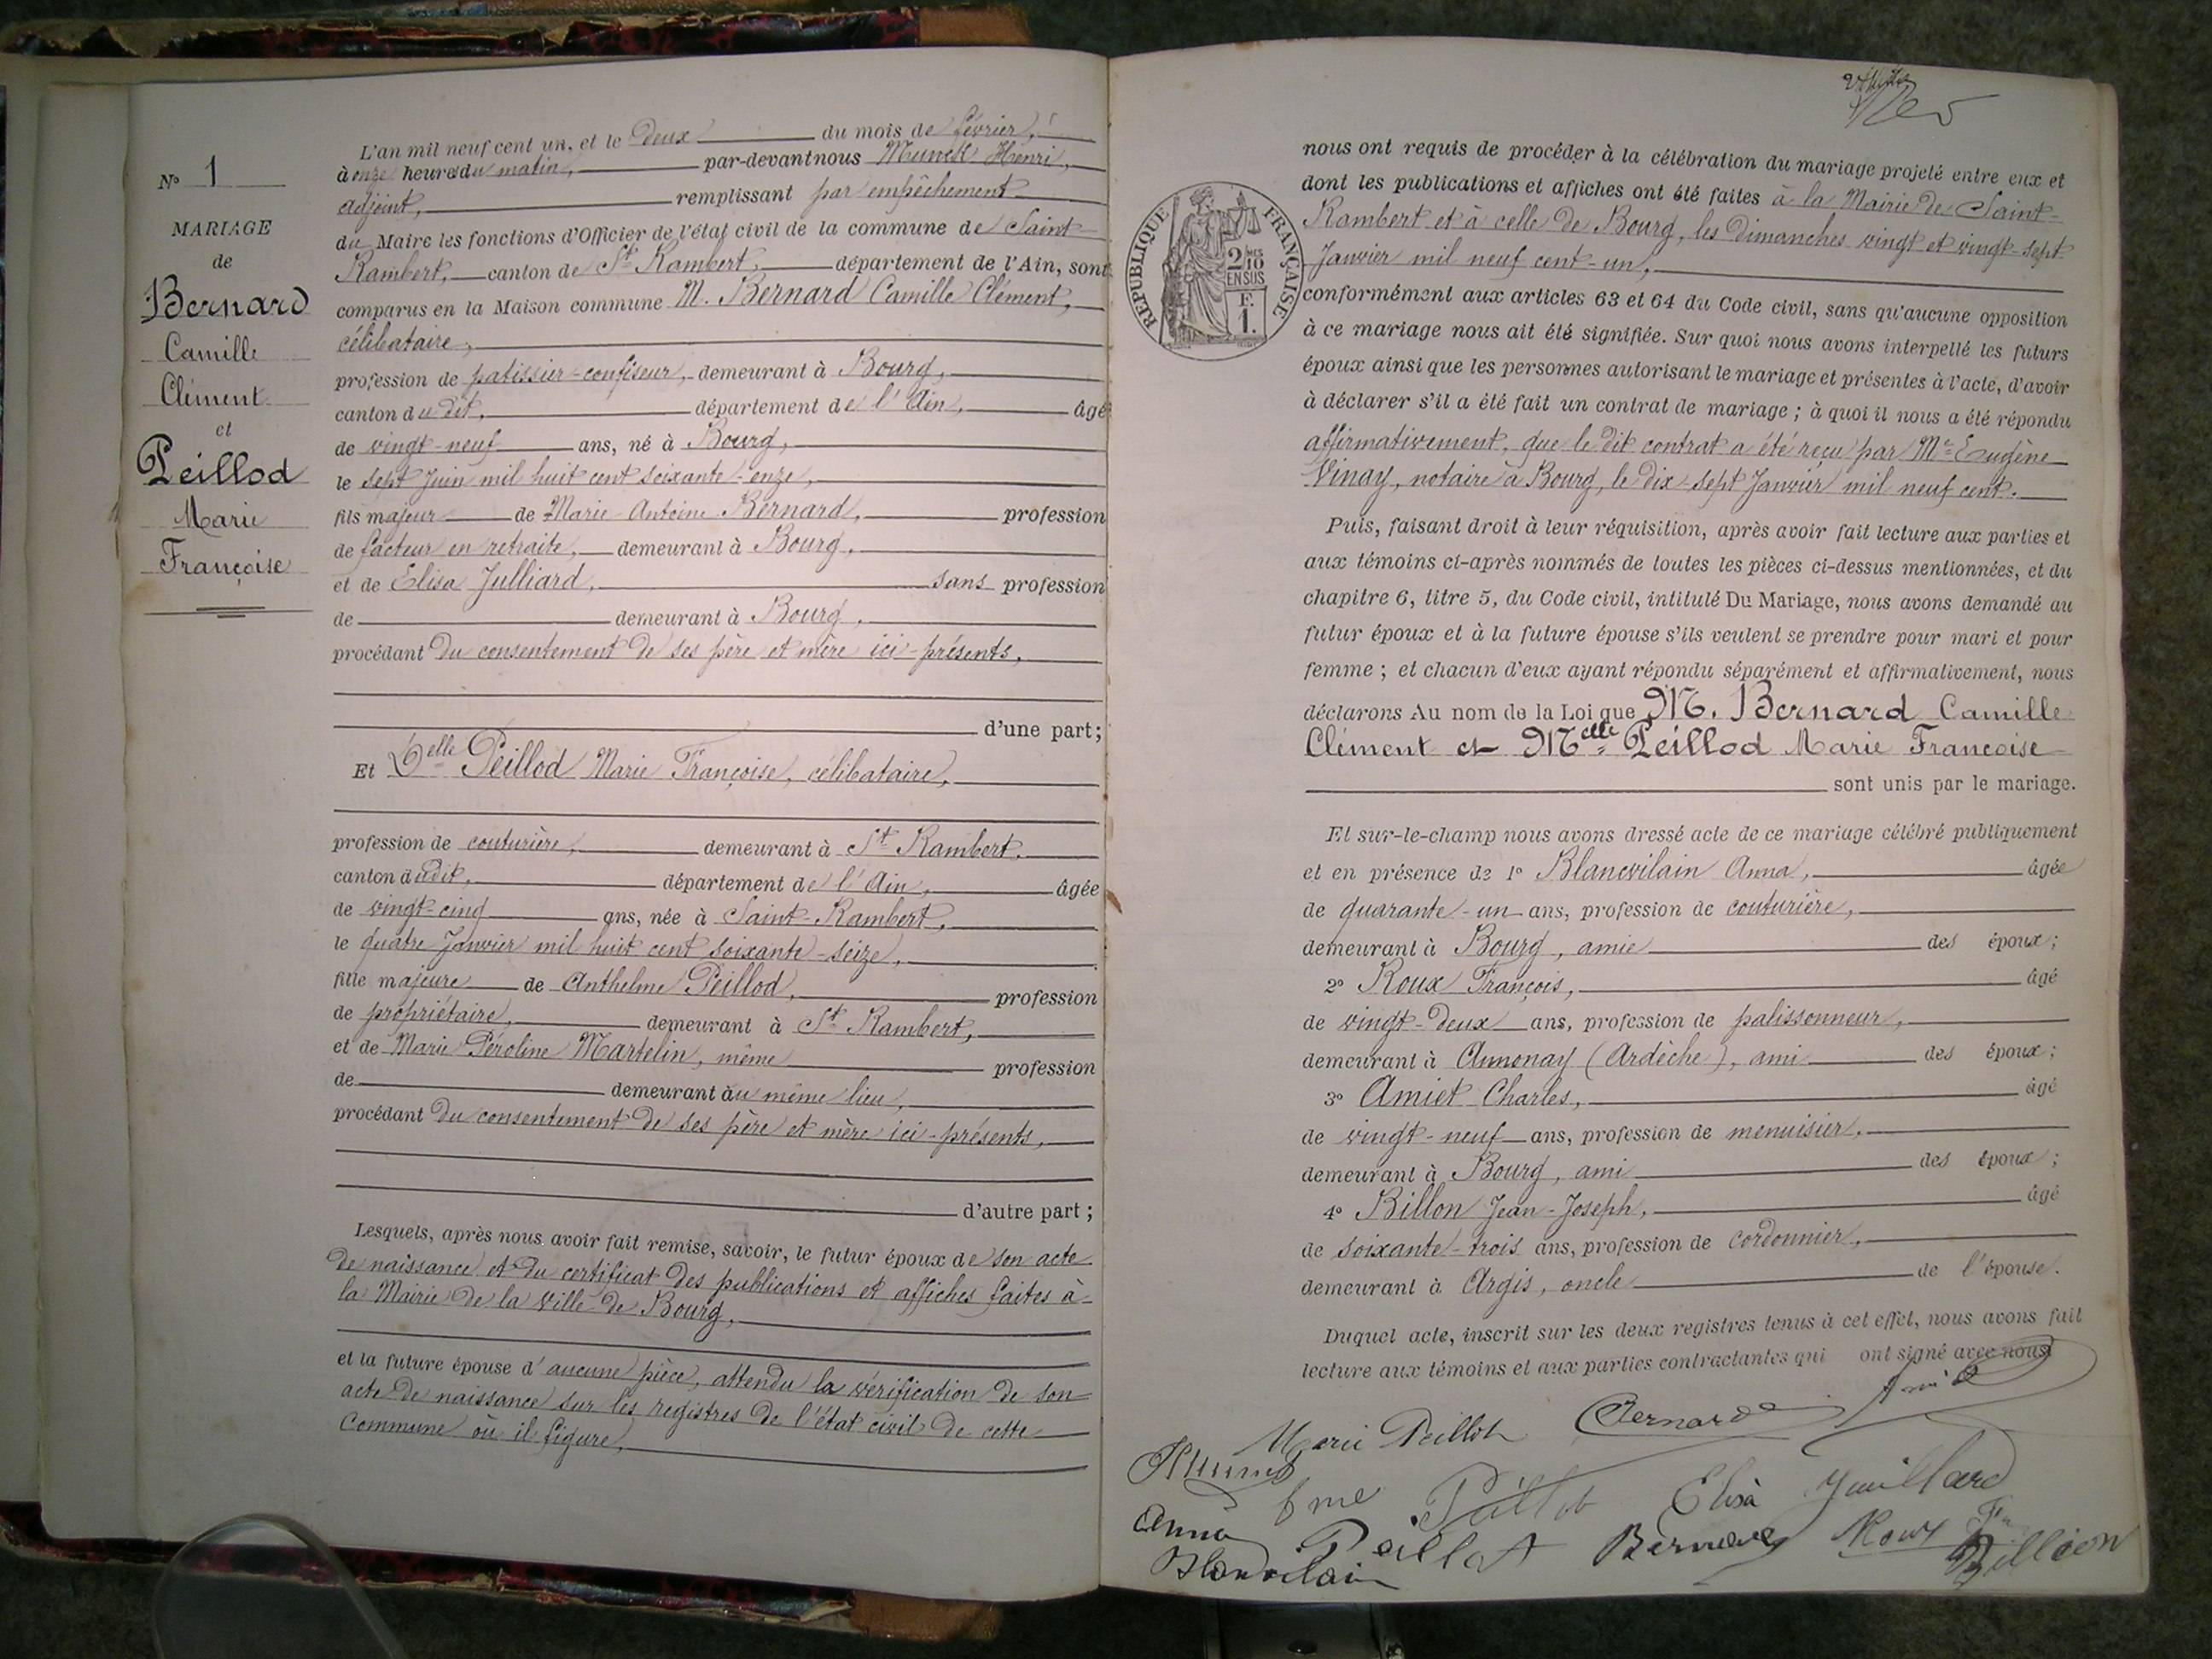 N° 1
MARIAGE
de
Bernard
Camille
Clément
et
Peillod
Marie
Françoise
L'an mil neuf cent un, et le deux du mois de février,
à onze heures du matin, par-devant nous Munck Henri,
adjoint, remplissant par empêchement
du Maire les fonctions d'Officier de l'état civil de la commune de Saint-
Rambert, canton de St Rambert, département de l'Ain, sont
comparus en la Maison commune M. Bernard Camille Clément,
célibataire,
profession de patissier-confiseur, demeurant à Bourg,
canton du dit, département de l'Ain, âgé
de vingt-neuf ans, né à Bourg,
le sept Juin mil huit cent soixante-onze,
fils majeur de Marie-Antoine Bernard, profession
de facteur en retraite, demeurant à Bourg,
et de Elisa Julliard, sans profession
de demeurant à Bourg,
procédant du consentement de ses père et mère ici-présents,
d'une part;
Et Delle Peillod Marie Françoise, célibataire,
profession de couturière, demeurant à St Rambert.
canton dudit, département de l'Ain, âgée
de vingt-cinq ans, née à Saint-Rambert,
le quatre Janvier mil huit cent soixante-seize,
fille majeure de Anthelme Peillod, profession
de propriétaire, demeurant à St Rambert,
et de Marie Péroline Martelin, même profession
de demeurant au même lieu,
procédant du consentement de ses père et mère ici-présents,
d'autre part;
Lesquels, après nous avoir fait remise, savoir, le futur époux de son acte
de naissance et du certificat des publications et affiches faites à
la Mairie de la ville de Bourg,
et la future épouse d'aucune pièce, attendu la vérification de son
acte de naissance sur les registres de l'état civil de cette
commune où il figure,
nous ont requis de procéder à la célébration du mariage projeté entre eux et
dont les publications et affiches ont été faites à la Mairie de Saint-
Rambert et à celle de Bourg, les dimanches vingt et vingt-sept
Janvier mil neuf cent-un,
RÉPUBLIQUE FRANÇAISE
2/10
EN SUS
F.
1.
conformément aux articles 63 et 64 du Code civil, sans qu'aucune opposition
à ce mariage nous ait été signifiée. Sur quoi nous avons interpellé les futurs
époux ainsi que les personnes autorisant le mariage et présentes à l'acte, d'avoir
à déclarer s'il a été fait un contrat de mariage; à quoi il nous a été répondu
affirmativement, que le dit contrat a été reçu par Me Eugène
Vinay, notaire à Bourg, le dix-sept Janvier mil neuf cent.
Puis, faisant droit à leur réquisition, après avoir fait lecture aux parties et
aux témoins ci-après nommés de toutes les pièces ci-dessus mentionnées, et du
chapitre 6, titre 5, du Code civil, intitulé Du Mariage, nous avons demandé au
futur époux et à la future épouse s'ils veulent se prendre pour mari et pour
femme; et chacun d'eux ayant répondu séparément et affirmativement, nous
déclarons Au nom de la Loi que M. Bernard Camille
Clément et Melle Peillod Marie Francoise
sont unis par le mariage.
Et sur-le-champ nous avons dressé acte de ce mariage célébré publiquement
et en présence de 1° Blancvilain Anna, âgée
de quarante-un ans, profession de couturière,
demeurant à Bourg, amie des époux;
2° Roux François, âgé
de vingt-deux ans, profession de palissonneur,
demeurant à Annonay (Ardèche), ami des époux;
3° Amiet Charles, âgé
de vingt-neuf ans, profession de menuisier,
demeurant à Bourg, ami des époux;
4° Billon Jean-Joseph, âgé
de soixante-trois ans, profession de cordonnier,
demeurant à Argis, oncle de l'épouse.
Duquel acte, inscrit sur les deux registres tenus à cet effet, nous avons fait
lecture aux témoins et aux parties contractantes qui ont signé avec nous
Marie Peillod Bernard
fme Elisa Juillard
Anna Peillot Bernard Roux
Blanvilain Billion